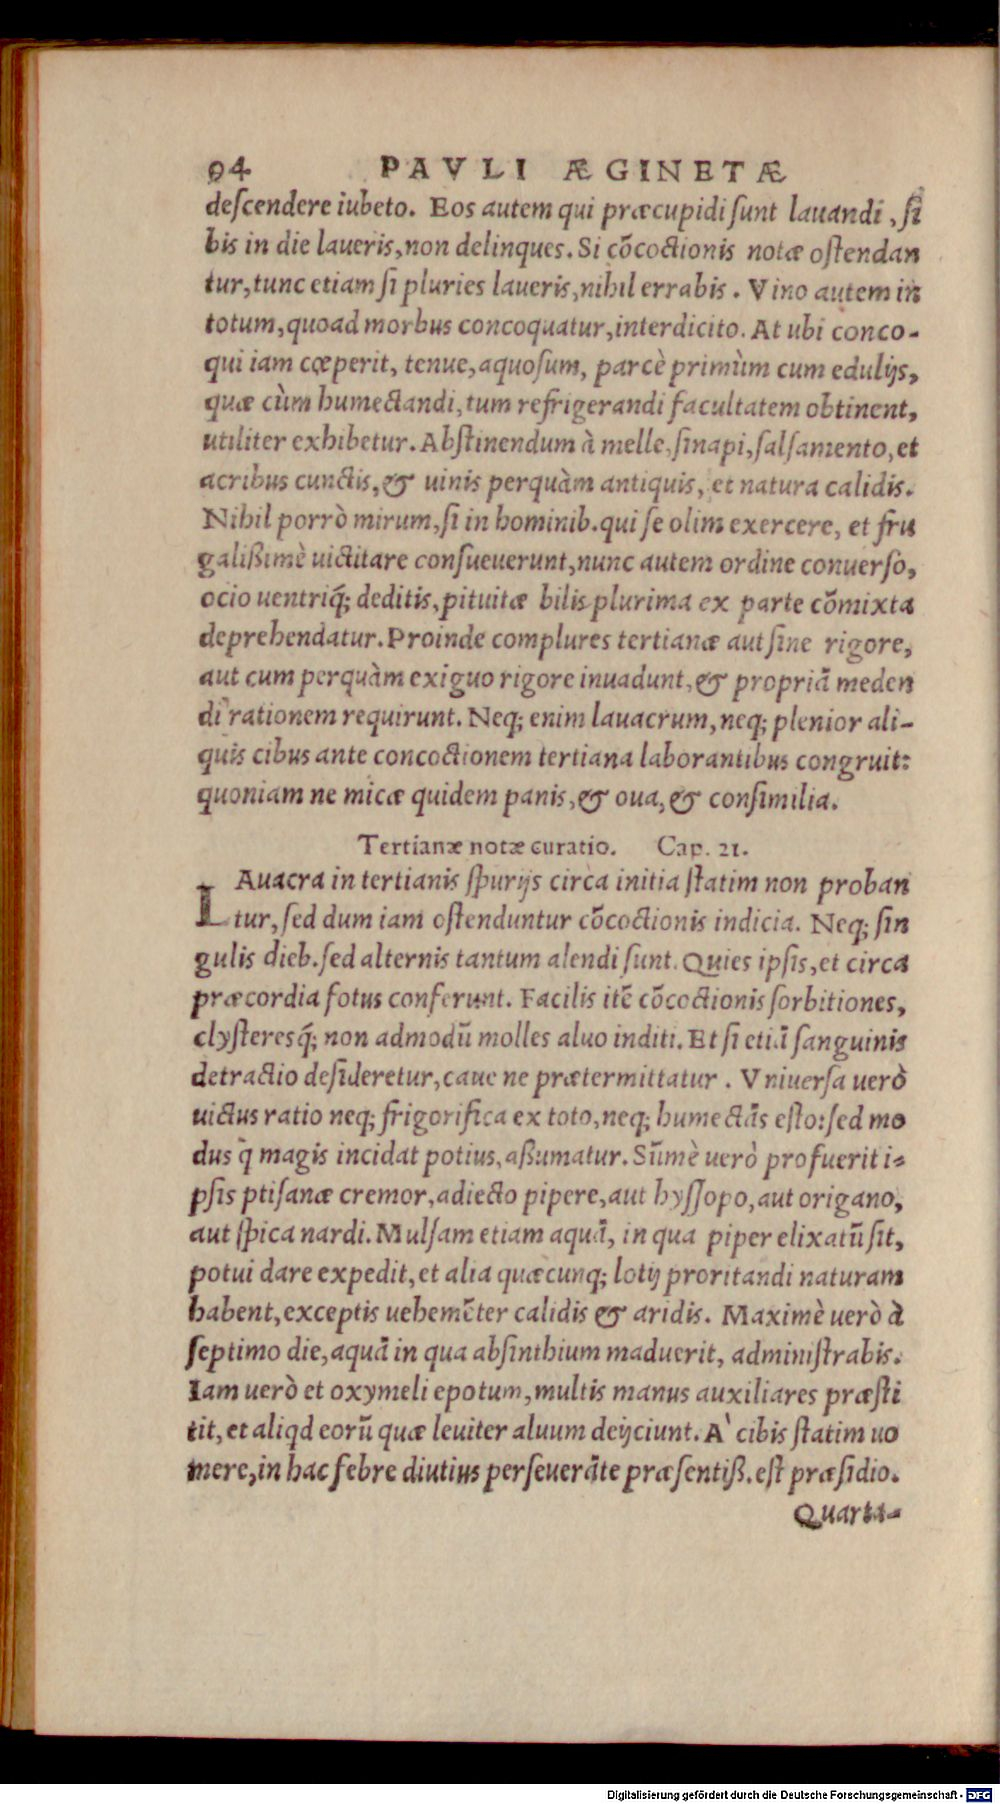 94 PAVLI ÆGINETÆ
deſcendere iubeto. Eos autem qui præcupidi ſunt lauandi, ſi
bis in die laueris, non delinques. Si cõcoctionis notæ oſtendan
tur, tunc etiam ſi pluries laueris, nihil errabis. Vino autem in
totum, quoad morbus concoquatur, interdicito. At ubi conco-
qui iam cœperit, tenue, aquoſum, parcè primùm cum edulijs,
quæ cùm humectandi, tum refrigerandi facultatem obtinent,
utiliter exhibetur. Abſtinendum à melle, ſinapi, ſalſamento, et
acribus cunctis, & uinis perquàm antiquis, et natura calidis.
Nihil porrò mirum, ſi in hominib. qui ſe olim exercere, et fru
galißimè uictitare conſueuerunt, nunc autem ordine conuerſo,
ocio uentriq́; deditis, pituitæ bilis plurima ex parte cõmixta
deprehendatur. Proinde complures tertianæ aut ſine rigore,
aut cum perquàm exiguo rigore inuadunt, & propriã meden
di rationem requirunt. Neq; enim lauacrum, neq; plenior ali-
quis cibus ante concoctionem tertiana laborantibus congruit:
quoniam ne micæ quidem panis, & oua, & conſimilia.
Tertianæ notæ curatio. Cap. 21.
LAuacra in tertianis ſpurijs circa initia ſtatim non proban
tur, ſed dum iam oſtenduntur cõcoctionis indicia. Neq; ſin
gulis dieb. ſed alternis tantum alendi ſunt. Quies ipſis, et circa
præcordia fotus conferunt. Facilis itẽ cõcoctionis ſorbitiones,
clyſteresq́; non admodũ molles aluo inditi. Et ſi etiã ſanguinis
detractio deſideretur, caue ne prætermittatur. Vniuerſa uerò
uictus ratio neq; frigorifica ex toto, neq; humectãs eſto: ſed mo
dus q̃ magis incidat potius, aßumatur. Sũmè uerò profuerit i-
pſis ptiſanæ cremor, adiecto pipere, aut hyſſopo, aut origano,
aut ſpica nardi. Mulſam etiam aquã, in qua piper elixatũ ſit,
potui dare expedit, et alia quæcunq; lotij proritandi naturam
habent, exceptis uehemẽter calidis & aridis. Maximè uerò à
ſeptimo die, aquã in qua abſinthium maduerit, adminiſtrabis.
Iam uerò et oxymeli epotum, multis manus auxiliares præſti
tit, et aliqd eorũ quæ leuiter aluum deijciunt. A' cibis ſtatim uo
mere, in hac febre diutius perſeuerãte præſentiß. eſt præſidio.
Quarta-
Digitalisierung gefördert durch die Deutsche Forschungsgemeinschaft - DFG